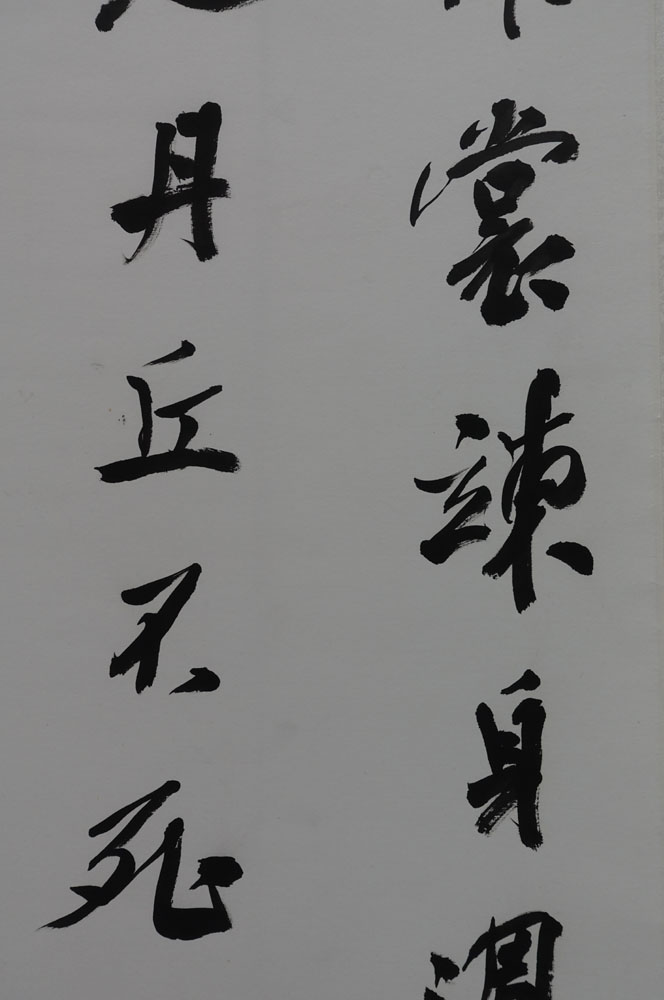 裳竦身
丹丘不死